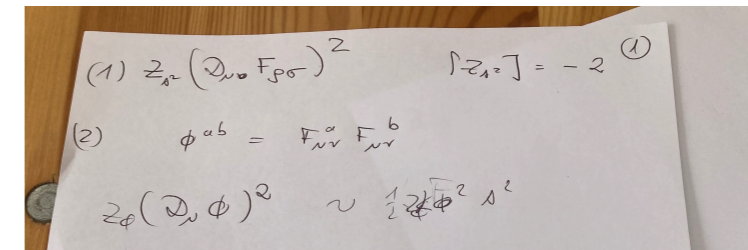 (1) Z_{s²} (D_μ F_{ρσ})² [Z_{s²}] = -2 ①
(2) φ^{ab} = F_{μν}^a F_{μν}^b
Z_φ (D_μ φ)² ~ ½ φ² s²